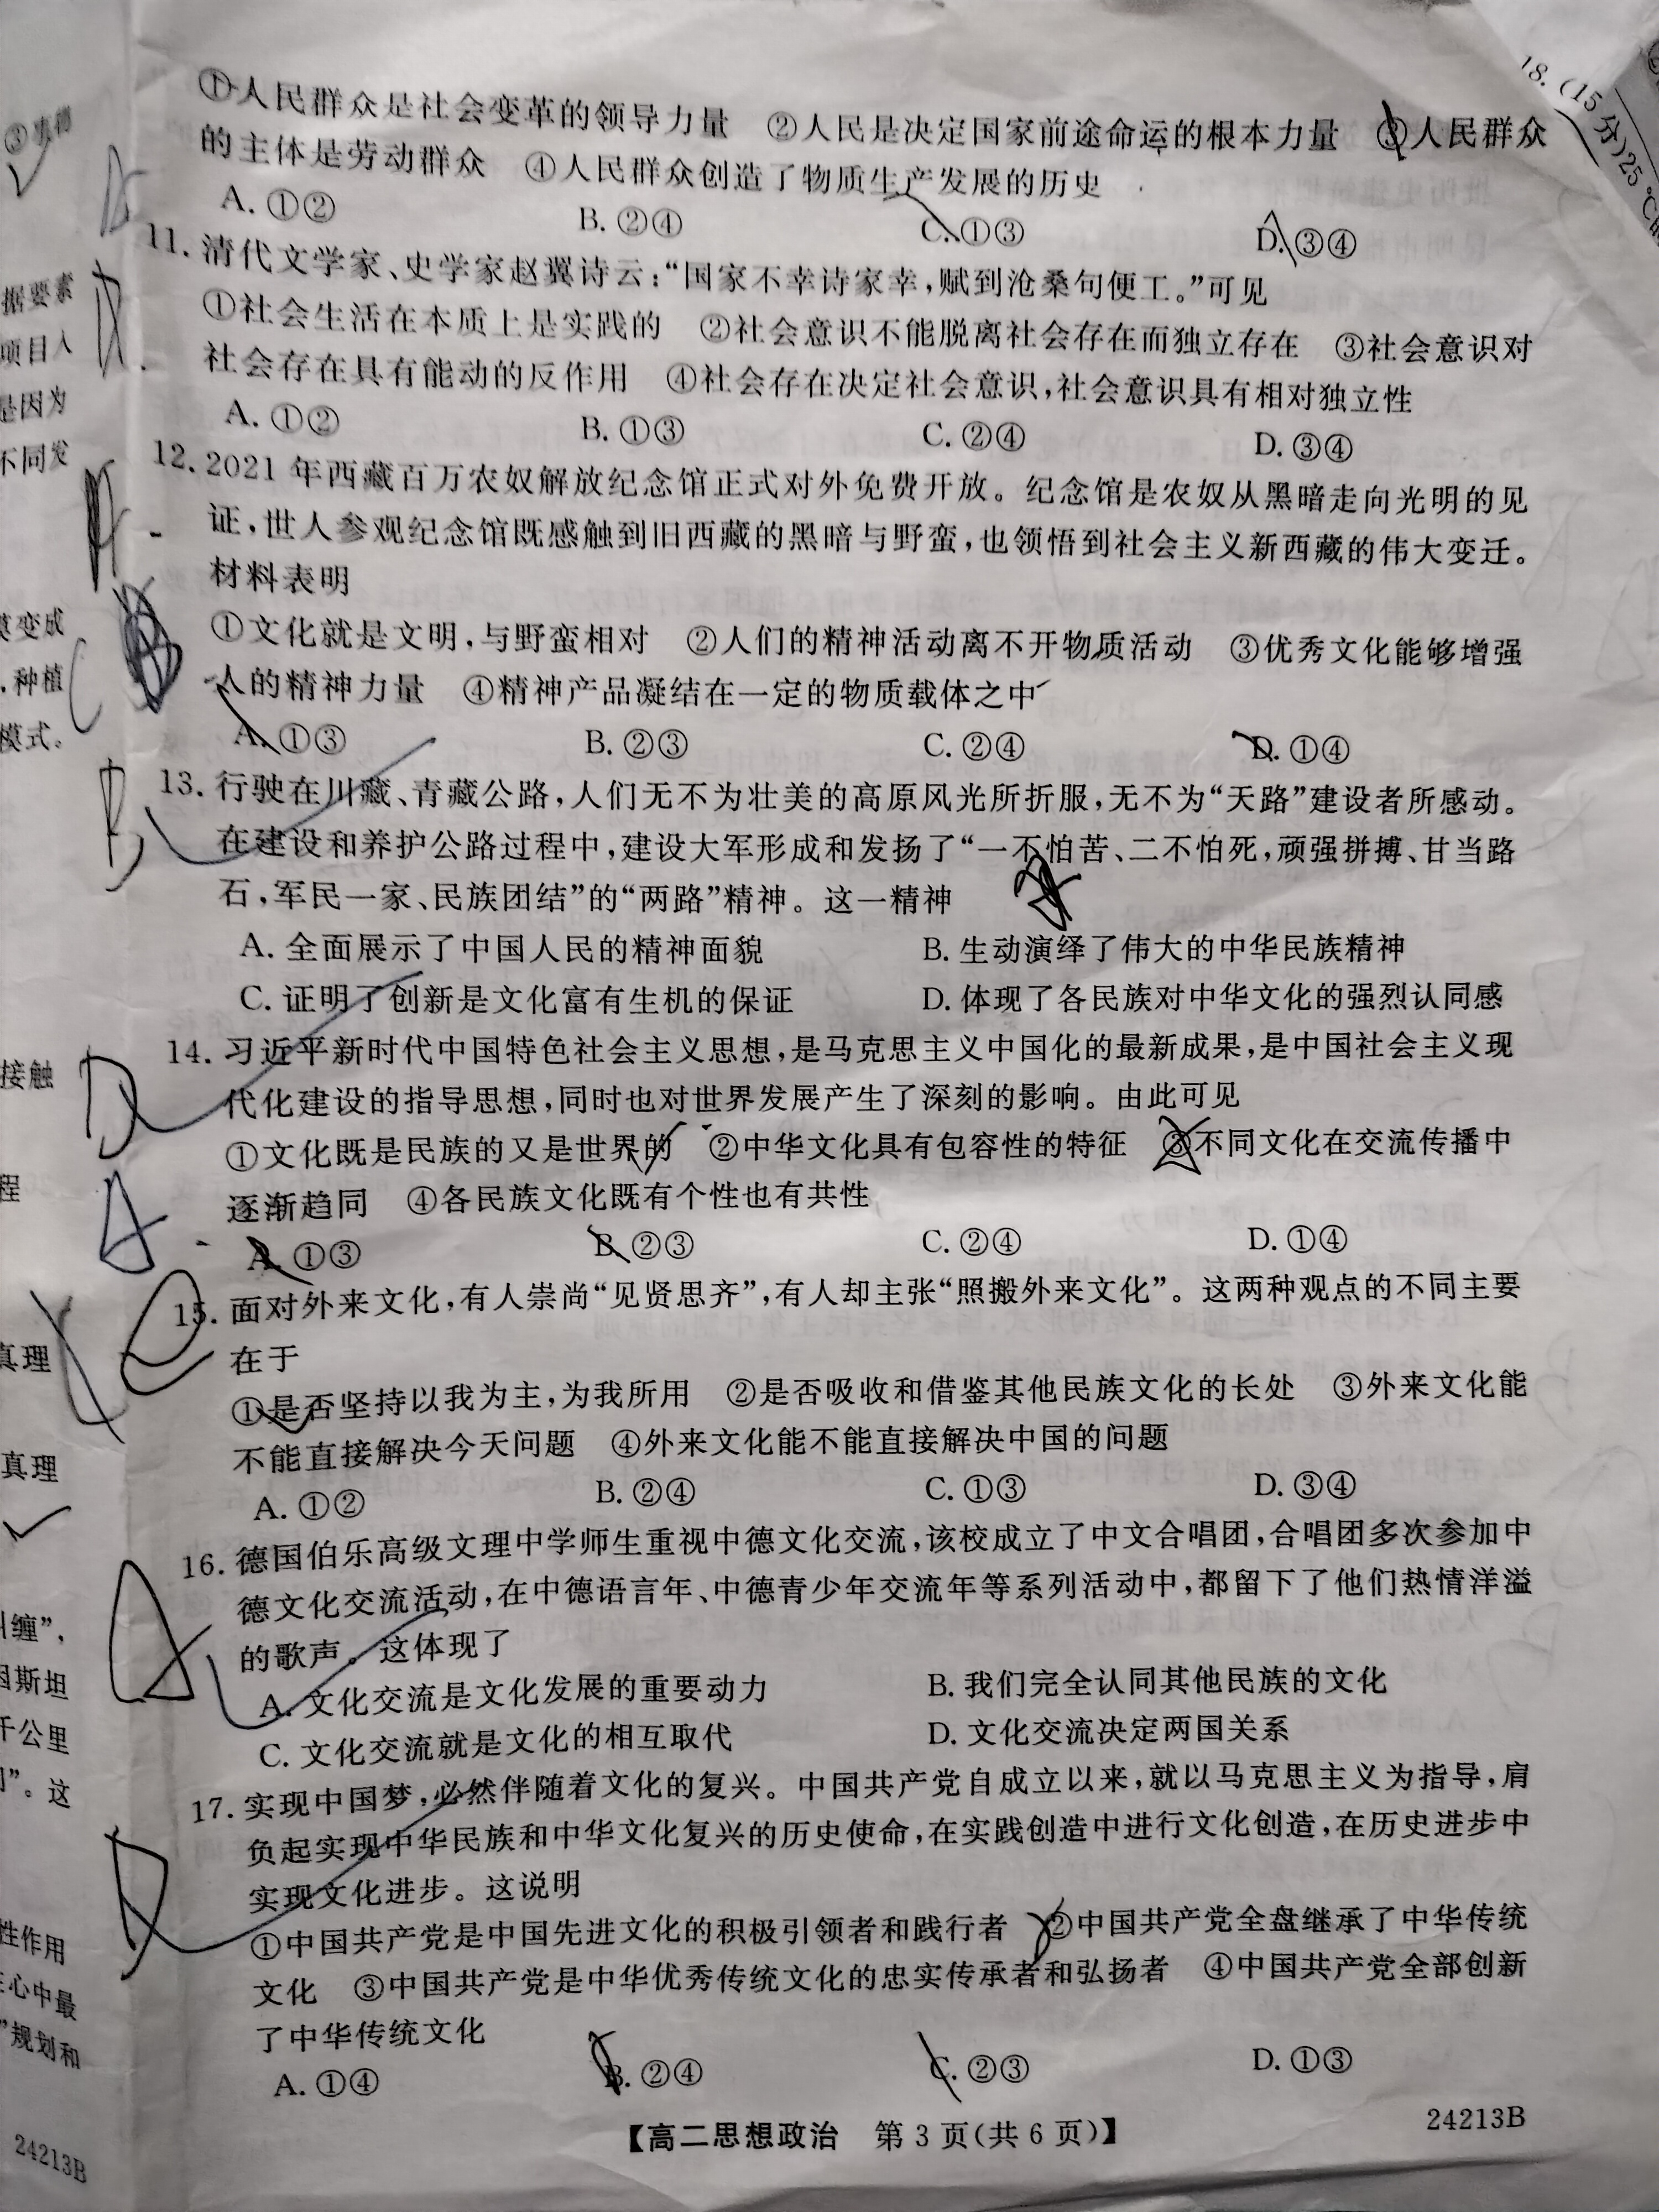 ①人民群众是社会变革的领导力量 ②人民是决定国家前途命运的根本力量 ③人民群众
的主体是劳动群众 ④人民群众创造了物质生产发展的历史
A. ①② B. ②④ C. ①③ D. ③④
11. 清代文学家、史学家赵翼诗云:“国家不幸诗家幸,赋到沧桑句便工。”可见
①社会生活在本质上是实践的 ②社会意识不能脱离社会存在而独立存在 ③社会意识对
社会存在具有能动的反作用 ④社会存在决定社会意识,社会意识具有相对独立性
A. ①② B. ①③ C. ②④ D. ③④
12. 2021 年西藏百万农奴解放纪念馆正式对外免费开放。纪念馆是农奴从黑暗走向光明的见
证,世人参观纪念馆既感触到旧西藏的黑暗与野蛮,也领悟到社会主义新西藏的伟大变迁。
材料表明
①文化就是文明,与野蛮相对 ②人们的精神活动离不开物质活动 ③优秀文化能够增强
人的精神力量 ④精神产品凝结在一定的物质载体之中
A. ①③ B. ②③ C. ②④ D. ①④
13. 行驶在川藏、青藏公路,人们无不为壮美的高原风光所折服,无不为“天路”建设者所感动。
在建设和养护公路过程中,建设大军形成和发扬了“一不怕苦、二不怕死,顽强拼搏、甘当路
石,军民一家、民族团结”的“两路”精神。这一精神
A. 全面展示了中国人民的精神面貌 B. 生动演绎了伟大的中华民族精神
C. 证明了创新是文化富有生机的保证 D. 体现了各民族对中华文化的强烈认同感
14. 习近平新时代中国特色社会主义思想,是马克思主义中国化的最新成果,是中国社会主义现
代化建设的指导思想,同时也对世界发展产生了深刻的影响。由此可见
①文化既是民族的又是世界的 ②中华文化具有包容性的特征 ③不同文化在交流传播中
逐渐趋同 ④各民族文化既有个性也有共性
A. ①③ B. ②③ C. ②④ D. ①④
15. 面对外来文化,有人崇尚“见贤思齐”,有人却主张“照搬外来文化”。这两种观点的不同主要
在于
①是否坚持以我为主,为我所用 ②是否吸收和借鉴其他民族文化的长处 ③外来文化能
不能直接解决今天问题 ④外来文化能不能直接解决中国的问题
A. ①② B. ②④ C. ①③ D. ③④
16. 德国伯乐高级文理中学师生重视中德文化交流,该校成立了中文合唱团,合唱团多次参加中
德文化交流活动,在中德语言年、中德青少年交流年等系列活动中,都留下了他们热情洋溢
的歌声。这体现了
A. 文化交流是文化发展的重要动力 B. 我们完全认同其他民族的文化
C. 文化交流就是文化的相互取代 D. 文化交流决定两国关系
17. 实现中国梦,必然伴随着文化的复兴。中国共产党自成立以来,就以马克思主义为指导,肩
负起实现中华民族和中华文化复兴的历史使命,在实践创造中进行文化创造,在历史进步中
实现文化进步。这说明
①中国共产党是中国先进文化的积极引领者和践行者 ②中国共产党全盘继承了中华传统
文化 ③中国共产党是中华优秀传统文化的忠实传承者和弘扬者 ④中国共产党全部创新
了中华传统文化
A. ①④ B. ②④ C. ②③ D. ①③
【高二思想政治 第 3 页(共 6 页)】
24213B
18. (15分)25 ℃
据要素
项目入
是因为
不同发
变成
,种植
模式。
接触
程
真理
真理
纠缠”,
因斯坦
千公里
”。这
性作用
心中最
”规划和
24213B